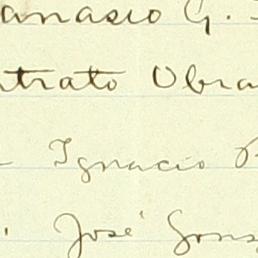 anasio G.
trato Obra
Ignacio
José Gons